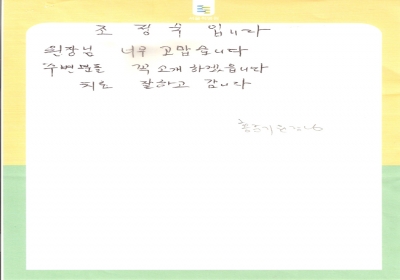 조 정 숙 입니다
원장님 너무 고맙습니다
주변분들 꼭 소개 하겠읍니다
치료 잘하고 갑니다